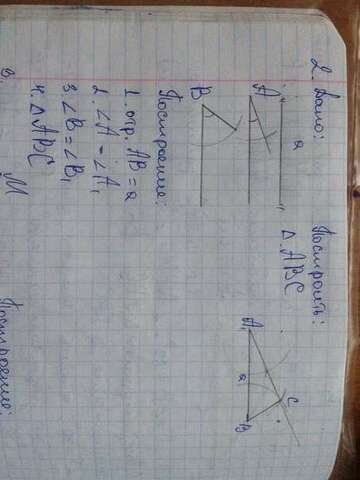 2. Дано: Построить:
a
△ ABC
A
B
A₁
a
B
C
Построение:
1. отр. AB = a
2. ∠A = ∠A₁
3. ∠B = ∠B₁
4. △ ABC
M
Построение: